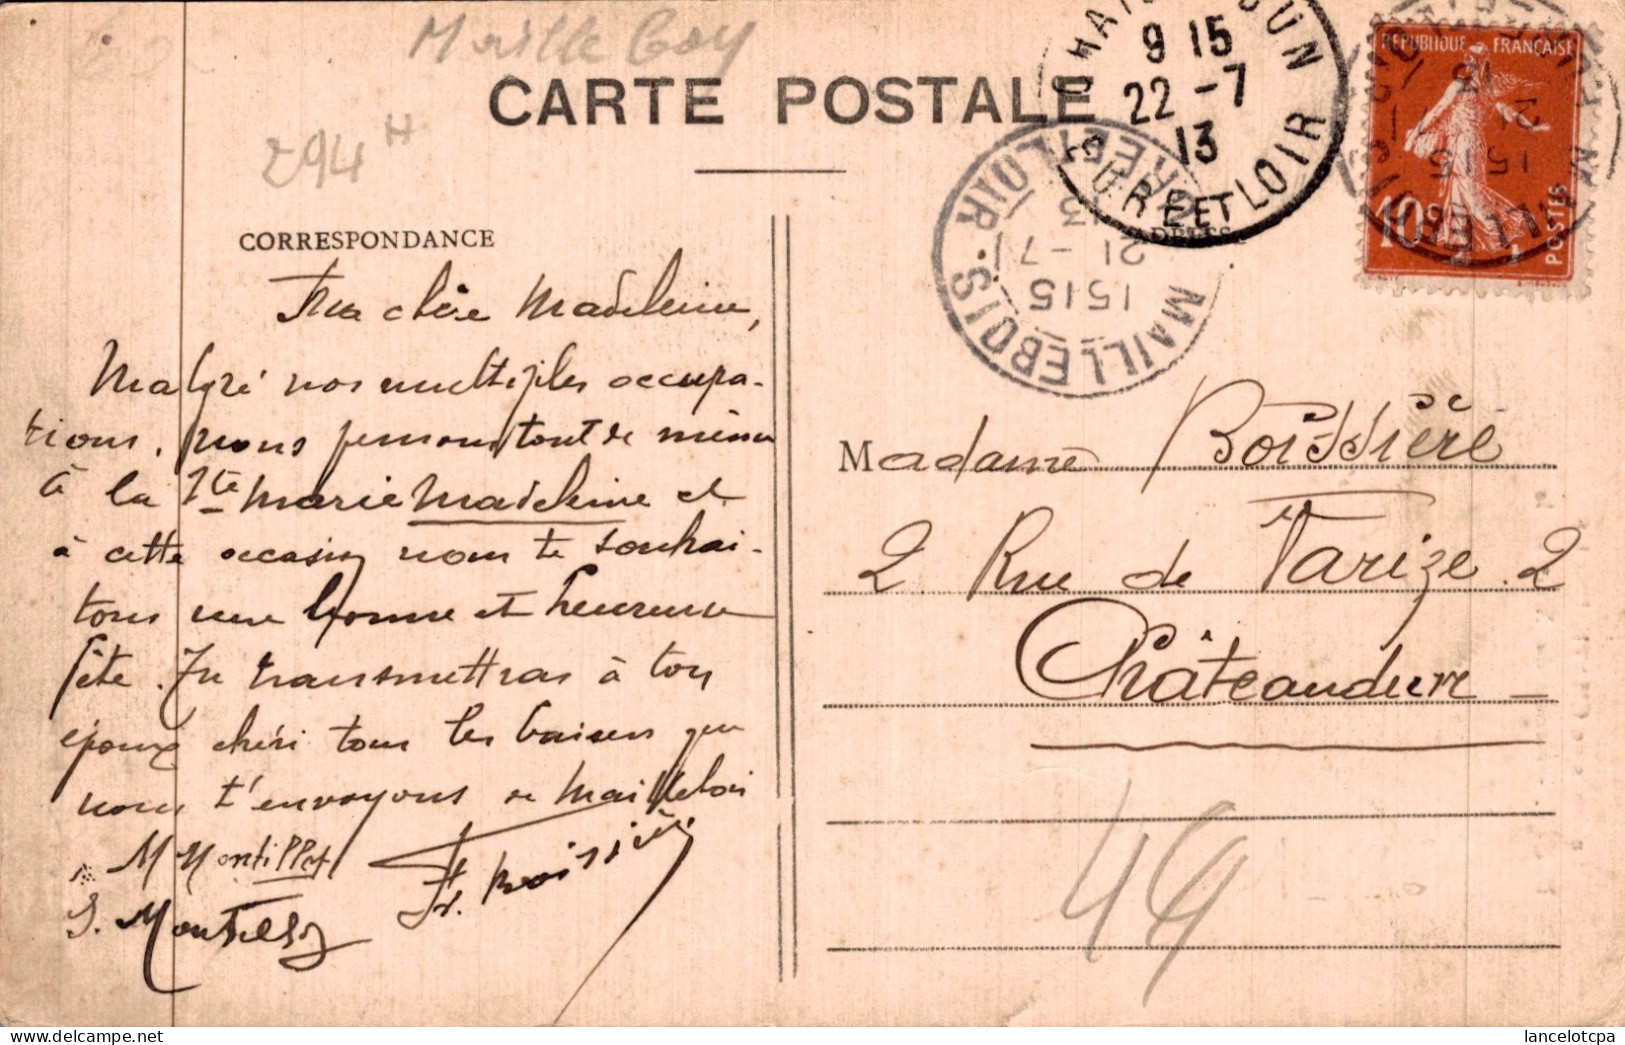 Maille boy
CARTE POSTALE
294 H
CORRESPONDANCE
Ma chère Madeleine,
Malgré nos multiples occupa-
tions, nous pensons tout de même
à la Ste Marie Madeleine et
à cette occasion nous te souhai-
tons une bonne et heureuse
fête. Tu transmettras à ton
époux chéri tous les baisers que
nous t'envoyons de Maillebois
M Montillet
Fr. Boissière
S. Montillet
CHATEAUDUN
9 15
22 -7
13
EURE ET LOIR
MAILLEBOIS
1515
21 -7
13
EURE ET LOIR
REPUBLIQUE FRANÇAISE
10c
POSTES
MAILLEBOIS
1515
21 -7
13
ADRESSE
Madame Boissière
2 Rue de Varize 2
Châteaudun
44
lancelotcpa